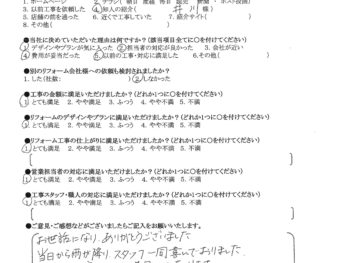 1. ホームページ 2. チラシ(
3. 以前工事を依頼した 4. 知人の紹介( 井川 様)
5. 店舗の前を通った 6. 近くで工事していた 7. 紹介サイト( )
8. その他( )
●当社に決めていただいた理由は何ですか?(該当項目全てに○を付けてください)
1. デザインやプランが気に入った 2. 担当者の対応が良かった 3. 会社が近い
4. 費用が妥当だった 5. 以前の工事・対応に満足した 6. その他( )
●別のリフォーム会社様への依頼も検討されましたか?
1. した(社数: ) 2. しなかった
●工事の金額に満足いただけましたか?(どれか1つに○を付けてください)
1. とても満足 2. やや満足 3. ふつう 4. やや不満 5. 不満
●リフォームのデザインやプランに満足いただけましたか?(どれか1つに○を付けてください)
1. とても満足 2. やや満足 3. ふつう 4. やや不満 5. 不満
●リフォーム工事の仕上がりに満足いただけましたか?(どれか1つに○を付けてください)
1. とても満足 2. やや満足 3. ふつう 4. やや不満 5. 不満
●営業担当者の対応に満足いただけましたか?(どれか1つに○を付けてください)
1. とても満足 2. やや満足 3. ふつう 4. やや不満 5. 不満
●工事スタッフ・職人の対応に満足いただけましたか?(どれか1つに○を付けてください)
1. とても満足 2. やや満足 3. ふつう 4. やや不満 5. 不満
●ご意見・ご感想などがございましたらご記入をお願いいたします。
お世話になり、ありがとうございました
当日から雨が降り、スタッフ一同喜んでおりました